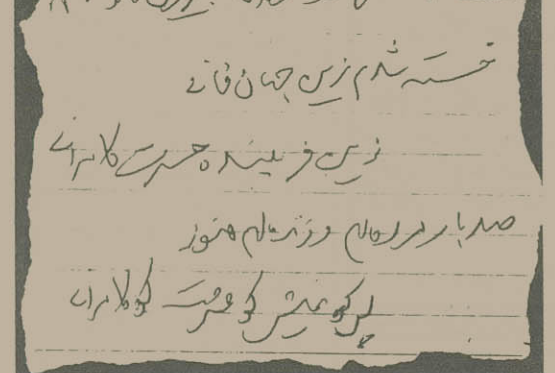 خسته شدم زین جهان فانی
زین فریبنده حسرت کامرانی
صد بار مرده‌ام و زنده‌ام هنوز
پس کو عیش کو عشرت کو کامرانی